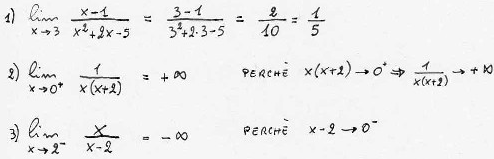 1) lim x→3 x-1 / x²+2x-5 = 3-1 / 3²+2·3-5 = 2/10 = 1/5
2) lim x→0⁺ 1 / x(x+2) = +∞ PERCHÈ x(x+2)→0⁺ ⇒ 1 / x(x+2) → +∞
3) lim x→2⁻ x / x-2 = -∞ PERCHÈ x-2→0⁻